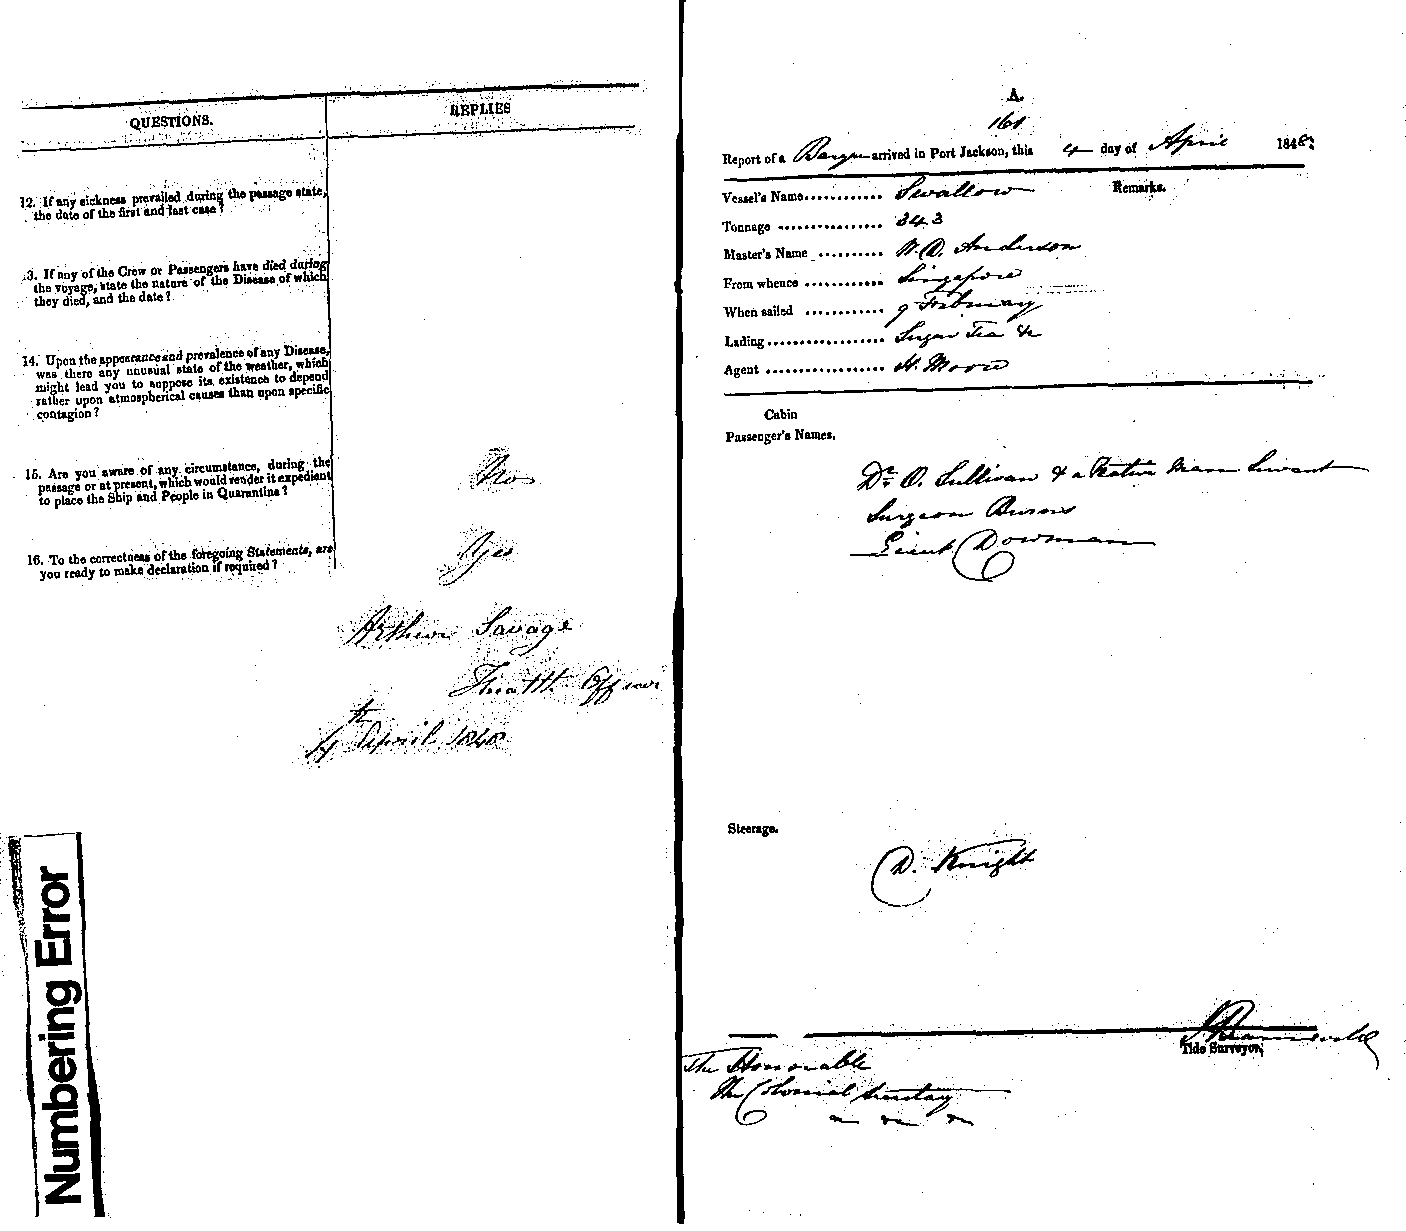 QUESTIONS.
REPLIES
12. If any sickness prevailed during the passage state,
the date of the first and last case?
3. If any of the Crew or Passengers have died during
the voyage, state the nature of the Disease of which
they died, and the date?
14. Upon the appearance and prevalence of any Disease,
was there any unusual state of the weather, which
might lead you to suppose its existence to depend
rather upon atmospherical causes than upon specific
contagion?
15. Are you aware of any circumstance, during the
passage or at present, which would render it expedient
to place the Ship and People in Quarantine?
No
16. To the correctness of the foregoing Statements, are
you ready to make declaration if required?
Yes
Arthur Savage
Health Officer
4th April 1848
Numbering Error
A.
161
Report of a Barque arrived in Port Jackson, this 4 day of April 1848.
Vessel's Name............ Swallow
Remarks.
Tonnage ................ 343
Master's Name .......... W. D. Anderson
From whence ............ Singapore
When sailed ............ 9 February
Lading.................. Sugar Tea &c
Agent .................. H. Moore
Cabin
Passenger's Names,
Dr. O. Sullivan & a Native Man Servant
Surgeon Burns
Lieut Dowman
Steerage.
D. Knight
Tide Surveyor,
The Honorable
The Colonial Secretary